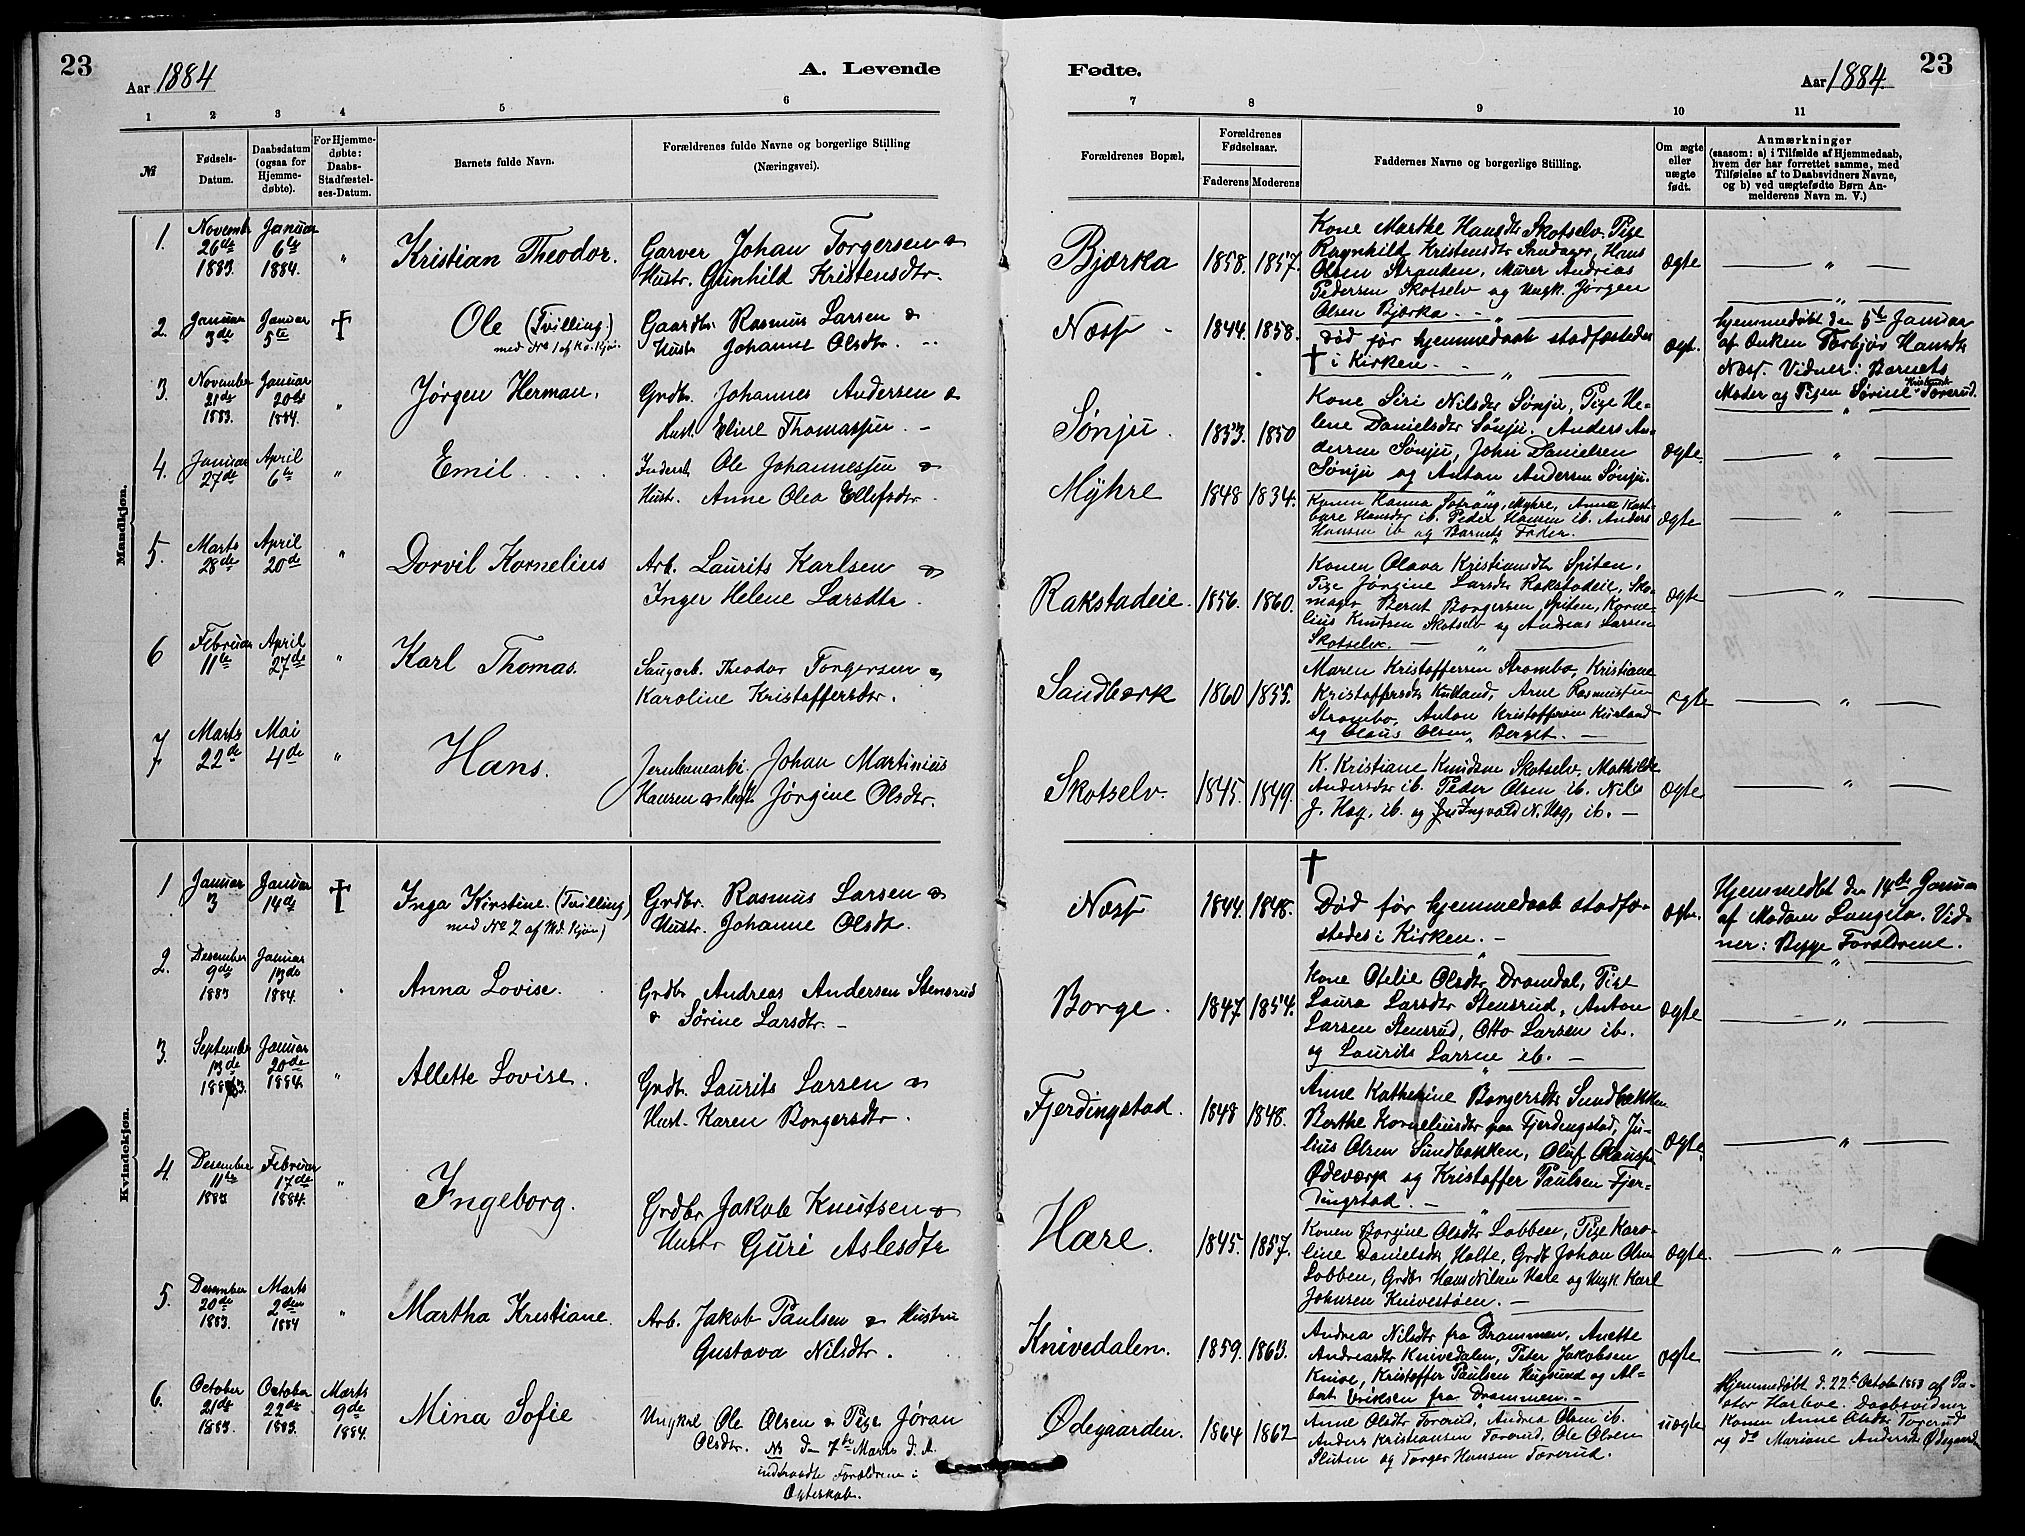 23
Aar 1884
A. Levende
Fødte.
Aar 1884.
23
1 2 3 4 5 6 7 8 9 10 11
№
Fødsels-
Datum.
Daabsdatum
(ogsaa for
Hjemme-
døbte).
For Hjemme-
døbte:
Daabs-
Stadfæstel-
ses-Datum.
Barnets fulde Navn.
Forældrenes fulde Navne og borgerlige Stilling
(Næringsvei).
Forældrenes Bopæl,
Forældrenes
Fødselsaar.
Faderens Moderens
Faddernes Navne og borgerlige Stilling.
Om ægte
eller
uægte
født.
Anmærkninger
(saasom: a) i Tilfælde af Hjemmedaab,
hvem der har forrettet samme, med
Tilføielse af to Daabsvidners Navne,
og b) ved uægtefødte Børn An-
melderens Navn m. V.)
Mandkjøn.
1.
Novembr
26de
1883.
Januar
6te
1884.
"
Kristian Theodor.
Garver Johan Torgersen &
Hustr. Gunhild Kristensdtr.
Bjørka
1858. 1857.
Kone Marthe Hansdtr Skotselv, Pige
Ragnhild Kristensdtr, Hans
Olsen Stranden, Murer Andreas
Pedersen Skotselv og Ungk. Jørgen
Olsen Bjørka.
ægte
"
2.
Januar
3de
Januar
5te
†
Ole (Tvilling.)
med No 1 af Kv. Kjøn.
Gaardbr. Rasmus Larsen &
Hustr. Johanne Olsdtr.
Næss
1844. 1858.
Død før hjemmedaab stadfæstedes
† i Kirken.
ægt.
Hjemmedøbt den 5te Januar
af Enken Torbjør Hansdtr
Næss. Vidner: Barnets
Moder og Pigen Sørine Kristensdtr Torerud.
3.
November
21de
1883.
Januar
20de
1884.
"
Jørgen Herman.
Grdbr. Johannes Andersen &
Hust. Eline Thomassen.
Sønju.
1853. 1850
Kone Siri Nilsdtr Sønju, Pige He-
lene Danielsdtr Sønju, Anders An-
dersen Sønju, John Danielsen
Sønju og Anton Andersen Sønju.
ægte.
"
4.
Januar
27de
April
6te
"
Emil.
Inderst Ole Johannessen &
Hustr. Anne Olea Ellefsdtr.
Myhre
1848 1834.
Konen Hanna Myhre, Anne Kast-
Hansdtr ib. Peder Hansen ib. Anders
Hansen ib og Barnets Fader.
ægte
"
5.
Marts
28de
April
20de
"
Dorvil Kornelius
Arb. Laurits Karlsen &
Inger Helene Larsdtr.
Rakstadeie.
1856. 1860.
Konen Olava Kristiansdtr Spiten.
Pige Jørgine Larsdtr Rakstadeie, Sko-
mager Bernt Borgersen Spiten, Korne-
lius Knutsen Skotselv og Andreas Larsen
Skotselv.
ægte
"
6
Februar
11te
April
27de
"
Karl Thomas.
Saugarb. Theodor Torgersen &
Karoline Kristoffersdtr.
Sandbæk
1860 1855.
Maren Kristoffersen Strombo, Kristiane
Kristoffersdtr Kurland, Arne Rasmussen
Strombo, Anton Kristoffersen Kurland
og Olaus Olsen Berget.
ægte
"
7
Marts
22de
Mai
4de
"
Hans.
Jernbanearb. Johan Martinius
Hansen & Jørgine Olsdtr.
Skotselv.
1845. 1849.
K. Kristiane Knudsen Skotselv, Mathilde
Andersdtr ib. Peder Olsen ib. Nils
J. Hag. ib. og Ingvald N. Hag, ib.
ægte
"
Kvindekjøn.
1
Januar
3
Januar
14de
†
Inga Kirstine. (Tvilling)
med No 2 af Md. Kjøn)
Grdbr. Rasmus Larsen &
Hustr. Johanne Olsdtr.
Næss
1844. 1848.
†
Død før hjemmedaab stadfæ-
stedes i Kirken.
ægte.
Hjemmedøbt den 14de Januar
af Madam Langela. Vid-
ner: Begge Forældrene.
2.
Desember
9de
1883
Januar
13de
1884.
Anna Lovise.
Grdbr Andreas Andersen Stensrud
& Sørine Larsdtr.
Borge.
1847. 1854.
Kone Otelie Olsdtr Dramdal, Pige
Laura Larsdtr Stensrud, Anton
Larsen Stensrud, Otto Larsen ib.
og Laurits Larsen ib.
ægte
"
3.
September
13de
1883.
Januar
20de
1884.
"
Allette Lovise.
Grdbr. Laurits Larsen &
Hust. Karen Borgersdtr.
Fjerdingstad.
1848 1848.
Anne Kathrine Borgersdtr Sundbakken
Berthe Korneliusdtr paa Fjerdingstad, Ju-
lius Olsen Sundbakken, Oluf Olaussen
Ødeværk og Kristoffer Paulsen Fjer-
dingstad.
ægte.
"
4.
Desember
11te
1883
Februar
17de
1884.
"
Ingeborg.
Grdbr Jakob Knutsen &
Hustr Guri Aslesdtr
Hære.
1845. 1857.
Konen Borgine Olsdtr Lobben, Pige Karo-
line Danielsdtr Holte, Grdb Johan Olsen
Lobben, Grdbr Hans Nilsen Hære og Ungk. Karl
Johnsen Knivestøen.
ægte.
"
5.
Desember
20de
1883.
Marts
2den
1884
"
Martha Kristiane.
Arb. Jakob Paulsen & Hustru
Gustava Nilsdtr.
Knivedalen.
1859. 1863.
Andrea Nilsdtr fra Drammen, Anette
Andreasdtr Knivedalen, Peter Jakobsen
Knive, Kristoffer Paulsen Hugsund og Al-
bert Eriksen fra Drammen.
ægte
"
6.
October
21de
1883.
October
22de
1883.
Marts
9de
1884.
Mina Sofie
Ungkal Ole Olsen & Pige Jøran
Olsdtr. NB den 7de Marts d. A.
indtraadte Forældrene i
Ægteskab.
Ødegaarden.
1864 1862
Anne Olsdtr Torerud, Andrea Olsen ib.
Anders Kristiansen Torerud, Ole Olsen
Sluten og Torger Hansen Torerud.
uægte
Hjemmedøbt d. 22de October 1883 af Pa-
stor Daabsvidner
Konen Anne Olsdtr Torerud
og do Mariane Andersdtr Ødegaarden